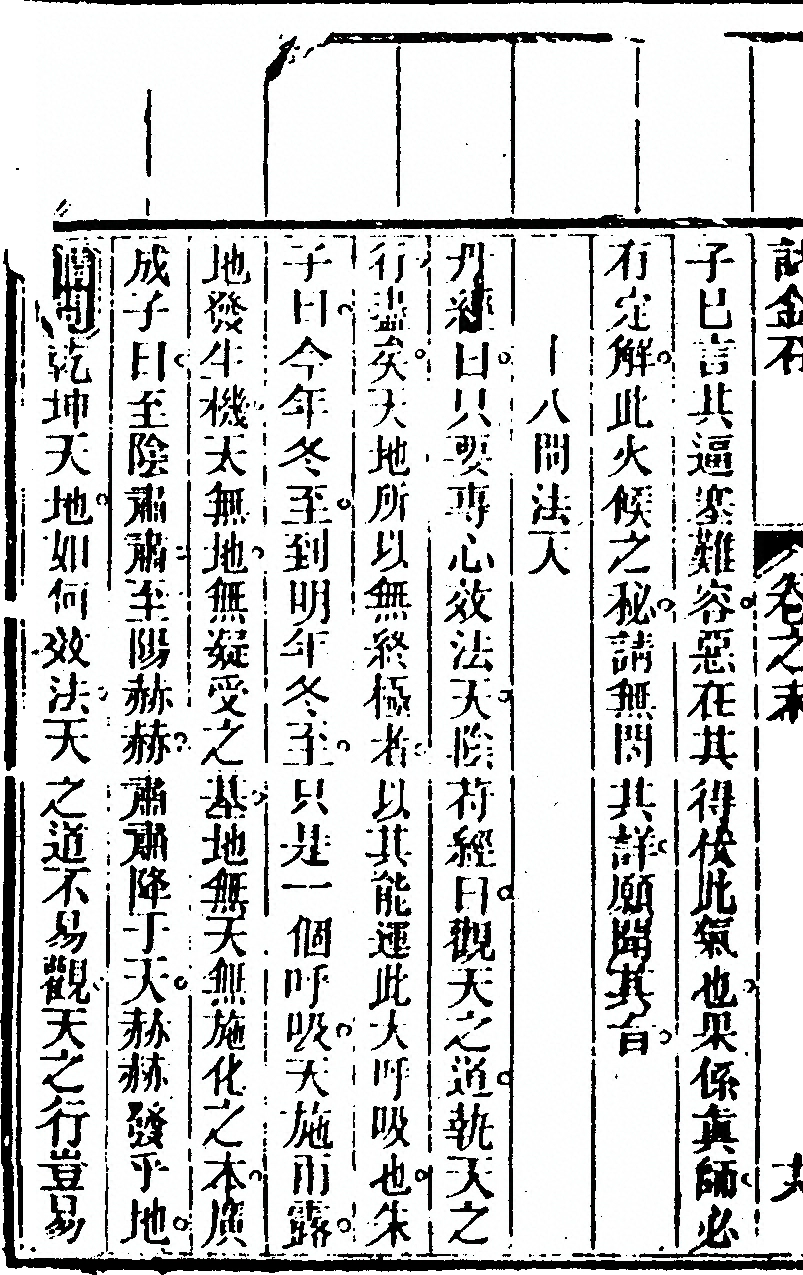 試金石 卷之末
子已言其逼塞難容惡在其得伏此氣也果係真師必
有定解此火候之秘請無問其詳願聞其旨
十八問法天
丹經曰只要專心效法天陰符經曰觀天之道執天之
行盡矣天地所以無終極者以其能運此大呼吸也朱
子曰今年冬至到明年冬至只是一個呼吸天施雨露
地發生機天無地無凝受之基地無天無施化之本廣
成子曰至陰肅肅至陽赫赫肅肅降于天赫赫發乎地
請問乾坤天地如何效法天之道不易觀天之行豈易